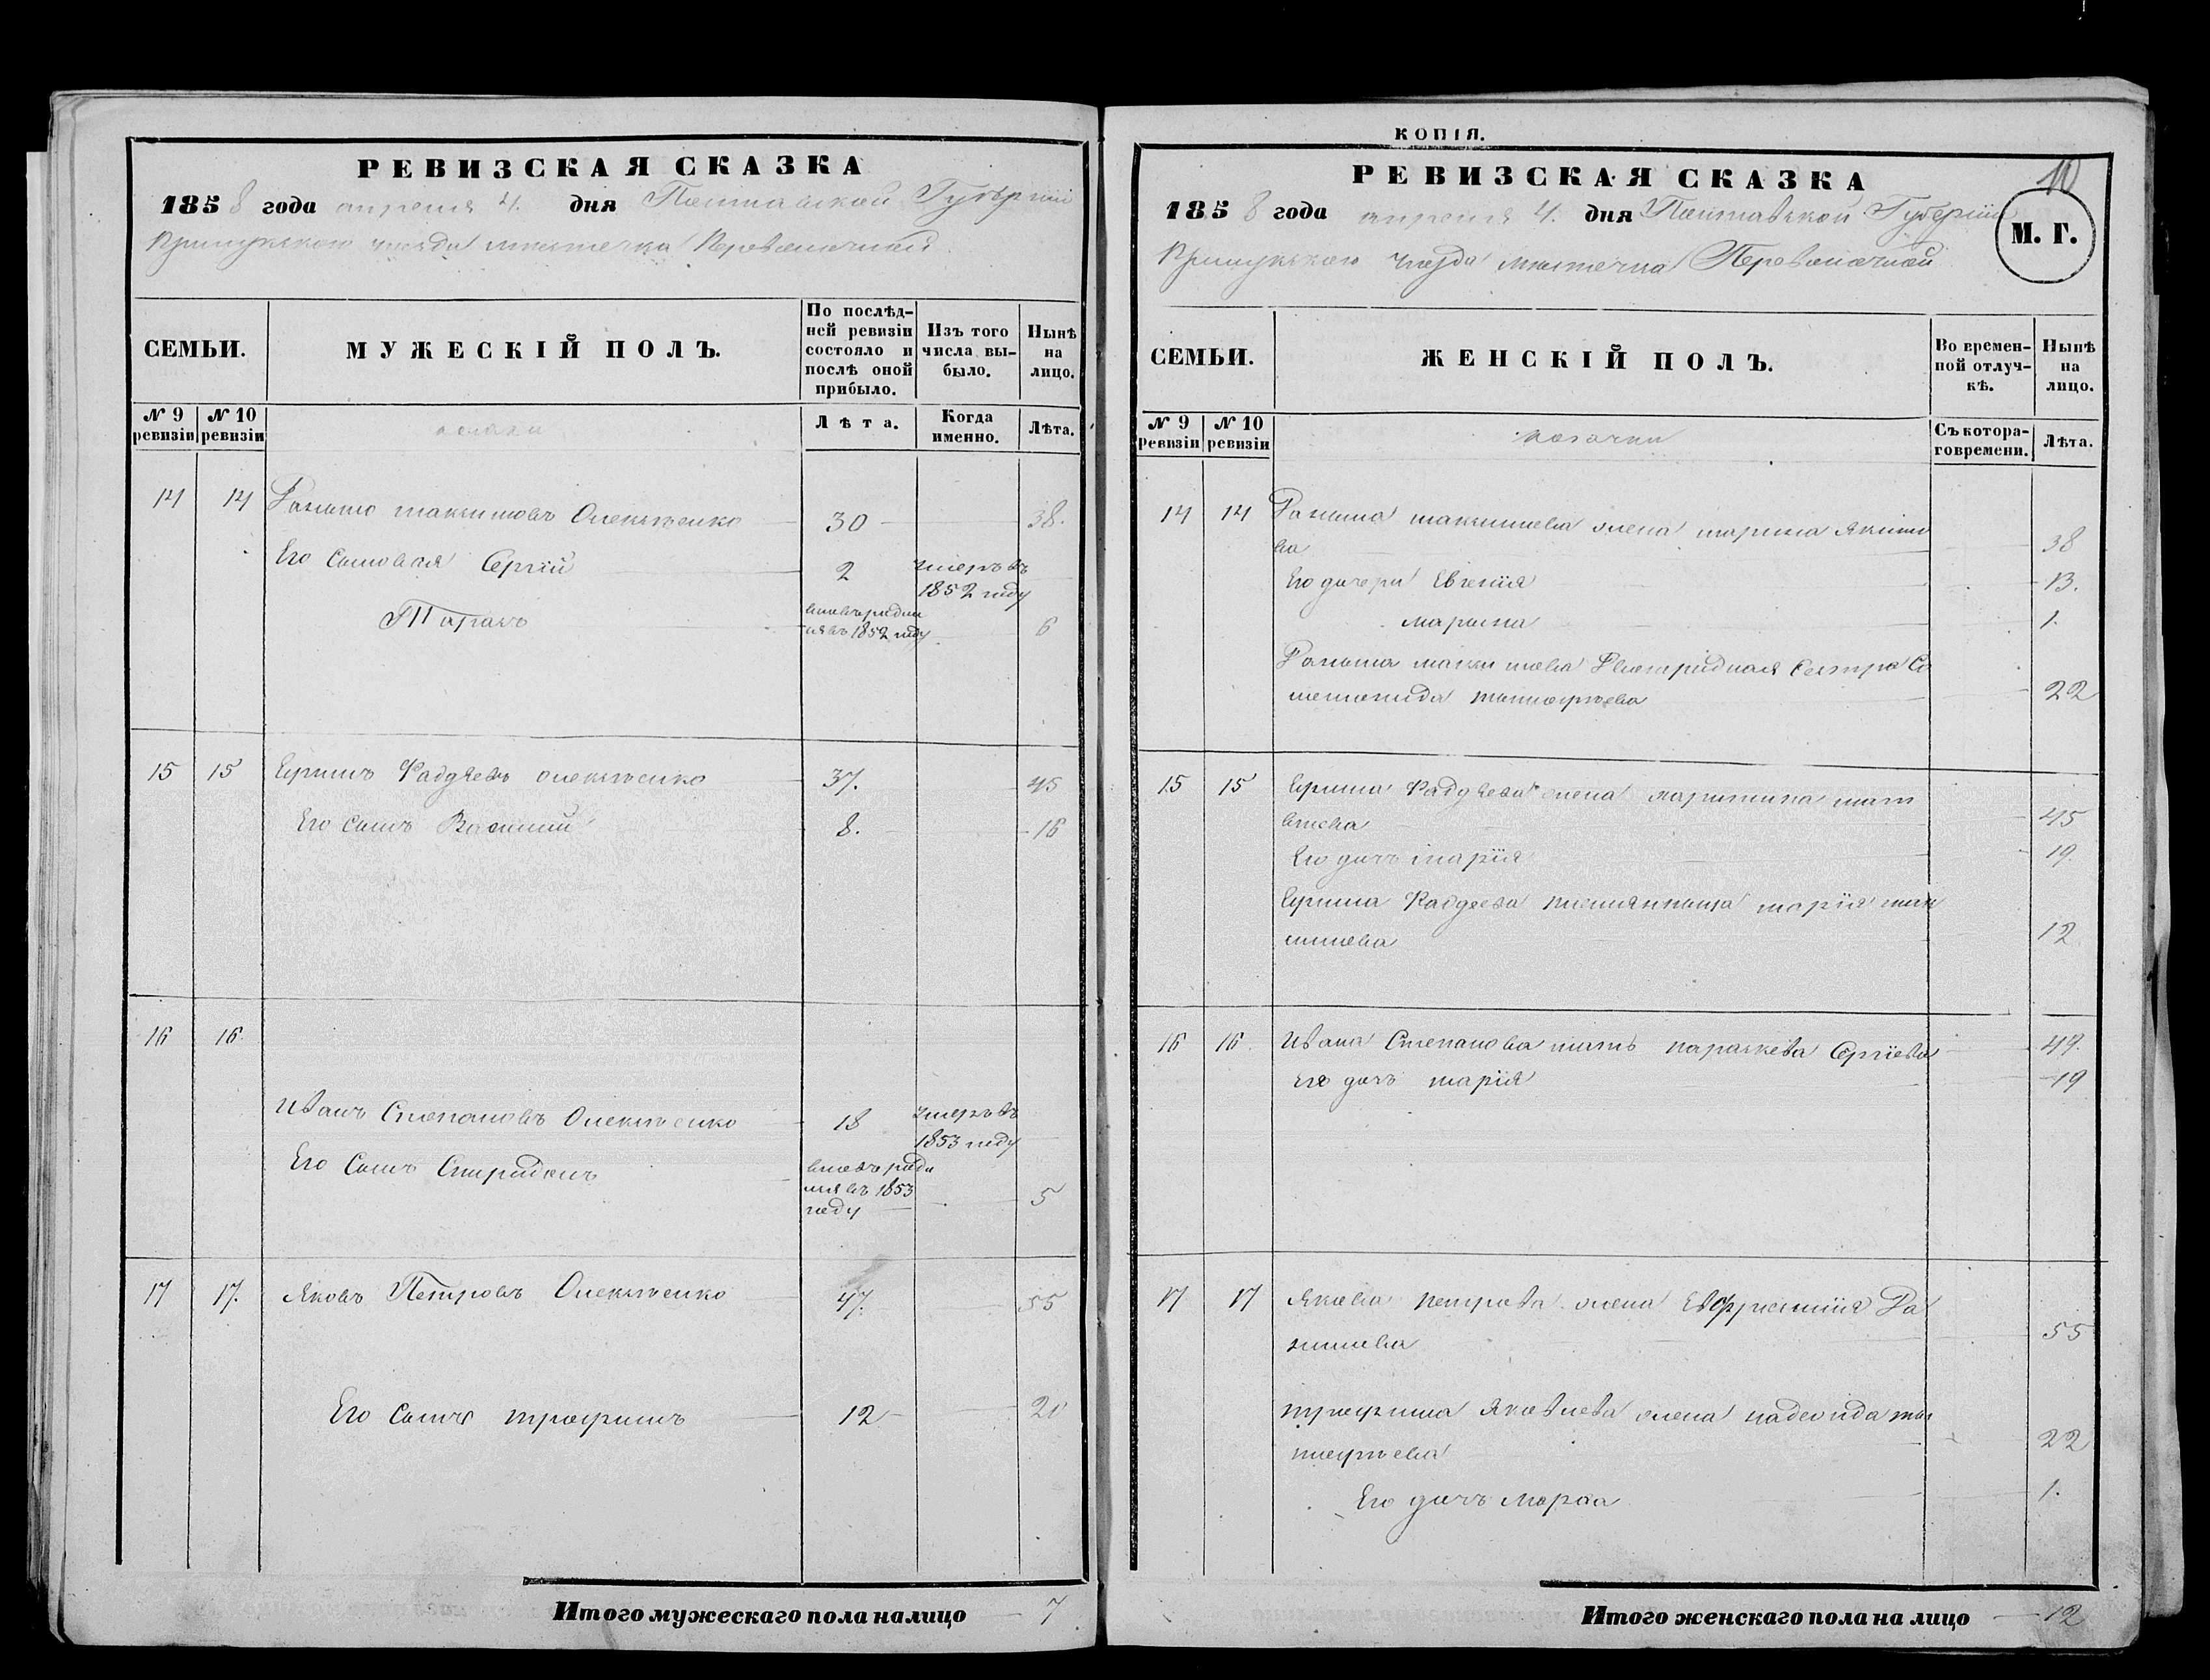 РЕВИЗСКАЯ СКАЗКА
1858 года апреля 4. дня Полтавской Губерніи
Прилукского уезда местечка Переволочной
СЕМЬИ.
МУЖЕСКІЙ ПОЛЪ.
По послѣд-
ней ревизіи
состояло и
послѣ оной
прибыло.
Изъ того
числа вы-
было.
Нынѣ
на
лицо.
№ 9
ревизіи
№ 10
ревизіи
козаки
Лѣта.
Когда
именно.
Лѣта.
14 14 Максимовъ Олексѣенко 30 38.
Его Сыновья Сергій 2 умеръ въ
1852 году
Тарасъ вновь родил
ся въ 1852 году 6
15 15 Ефимъ Фадѣевъ Олексѣенко 37. 45
Его Сынъ Василий 8. 16
16 16
Иванъ Степановъ Олексѣенко 18 умеръ въ
1853 году
Его Сынъ Спиридонъ вновь роди
лся въ 1853
году 5
17 17. Яковъ Петровъ Олексѣенко 47. 55
Его Сынъ трофимъ 12 20
Итого мужескаго пола налицо 7
КОПІЯ.
10
РЕВИЗСКАЯ СКАЗКА
1858 года апреля 4. дня Полтавской Губерніи
М. Г.
Прилукского уезда местечка Переволочной
СЕМЬИ.
ЖЕНСКІЙ ПОЛЪ.
Во времен-
ной отлуч-
кѣ.
Нынѣ
на
лицо.
№ 9
ревизіи
№ 10
ревизіи
козачки
Съ котора-
го времени.
Лѣта.
14 14 максимова жена марина Якимо
ва 38
Его дочери Евгенія 13.
марина 1.
максимова Двоюродная Сестра Со
ломонида тимофѣева 22
15 15 Ефима Фадѣева жена мат
вѣева 45
Его дочь марія 19
Ефима Фадѣева племянница марія мак
симова 12
16 16. Ивана Степанова мать параскева Сергіева 49.
Его дочь марія 19
17 17 Якова петрова жена Евфросинія Да
ниилова 55
трофима Яковлева жена надежда ти
мофѣева 22
Его дочь марфа 1.
Итого женскаго пола на лицо 12